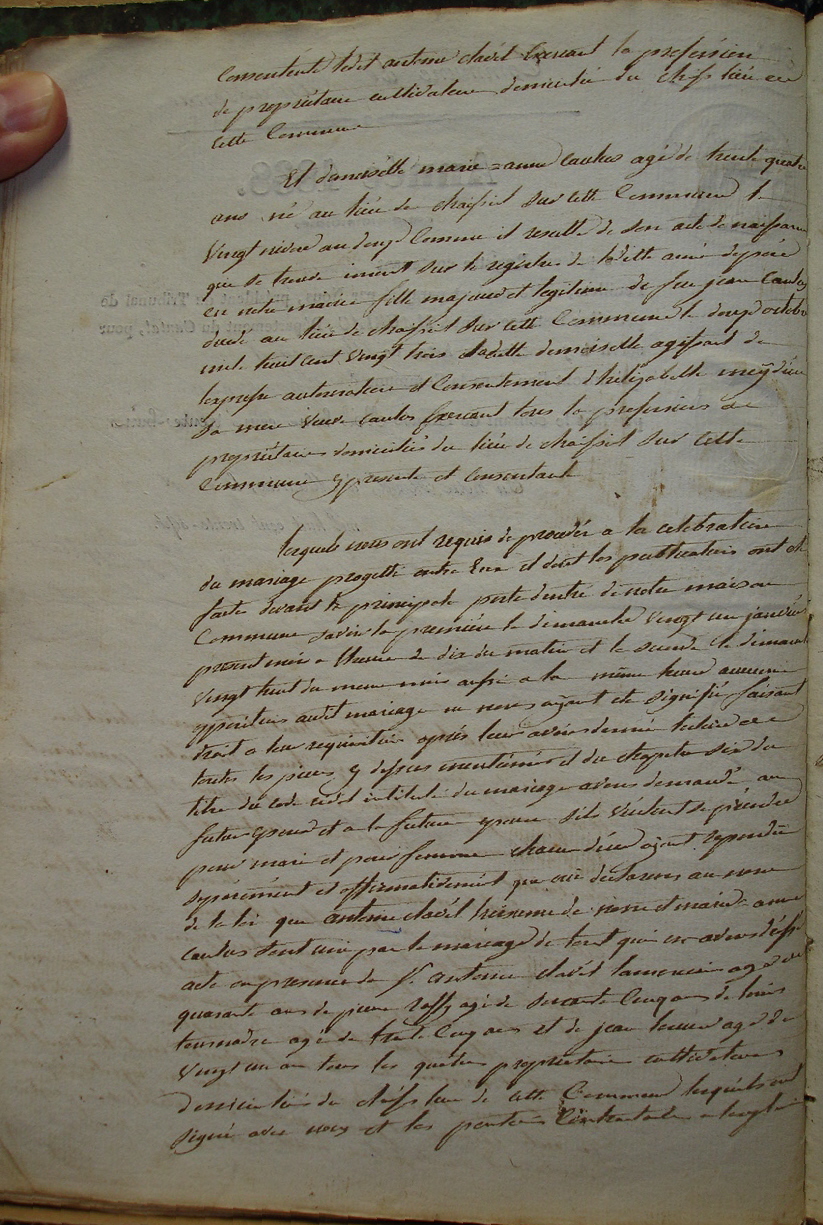 Consentente ledit antoine clavel Exercant la profession
de propriétaire cultivateur domicilié du chef lieu de
cette Commune
Et demoiselle marie = anne Caulus agé de trente quatre
ans né au lieu de chaissiel sur cette Commune le
Vingt nivose an douze Comme il resulte de son acte de naissance
que se trouve inseret sur le registre de ladite année deposée
en notre mairie fille majeure et legitime de feu jean Caulus
décédé au lieu de chaissiel sur cette Commune le douze octobre
mil huit cent Vingt trois Ladite demoiselle agissant de
lexpresse autorisation et Consentement d'helizabelle meydieu
Sa mere Veuve caulus Exercant tous la profession de
propriétaires domiciliés du lieu de chaissiel sur cette
Commune y presente et consentante
Lesquels nous ont requis de proceder a la celebration
du mariage progetté entre Eux et dont les publications ont été
faite devant la principale porte dentre de notre maison
Commune savoir la première le dimanche vingt un janvier
present mois a l'heure de dix du matin et la seconde le dimanche
Vingt huit du meme mois aussi a la même heure aucune
opposition audit mariage ne nous ayant été signifié faisant
droit a leur requisition après leur avoir donné lecture de
toutes les pieces y dessus mentionnés et du chapitre six du
titre du code civil intitulé du mariage avons demandé au
futur Epoux et a la future epouse s'ils veulent se prendre
pour mari et pour femme chacun d'eux ayant repondu
séparément et affirmativement que oui declarons au nom
de la loi que antoine clavel de nom et marie = anne
caulus sont unis par le mariage de tout quoi en avons dréssé
acte en presence de S. antoine clavel agé de
quarante ans de pierre Roffy agé de Cinq ans de louis
tournadre agé de trente Cinq ans et de jean agé de
Vingt un an tous les quatre propriétaires cultivateurs
domiciliés du chef lieu de cette Commune lesquels ont
signé avec nous et les parties Contractantes